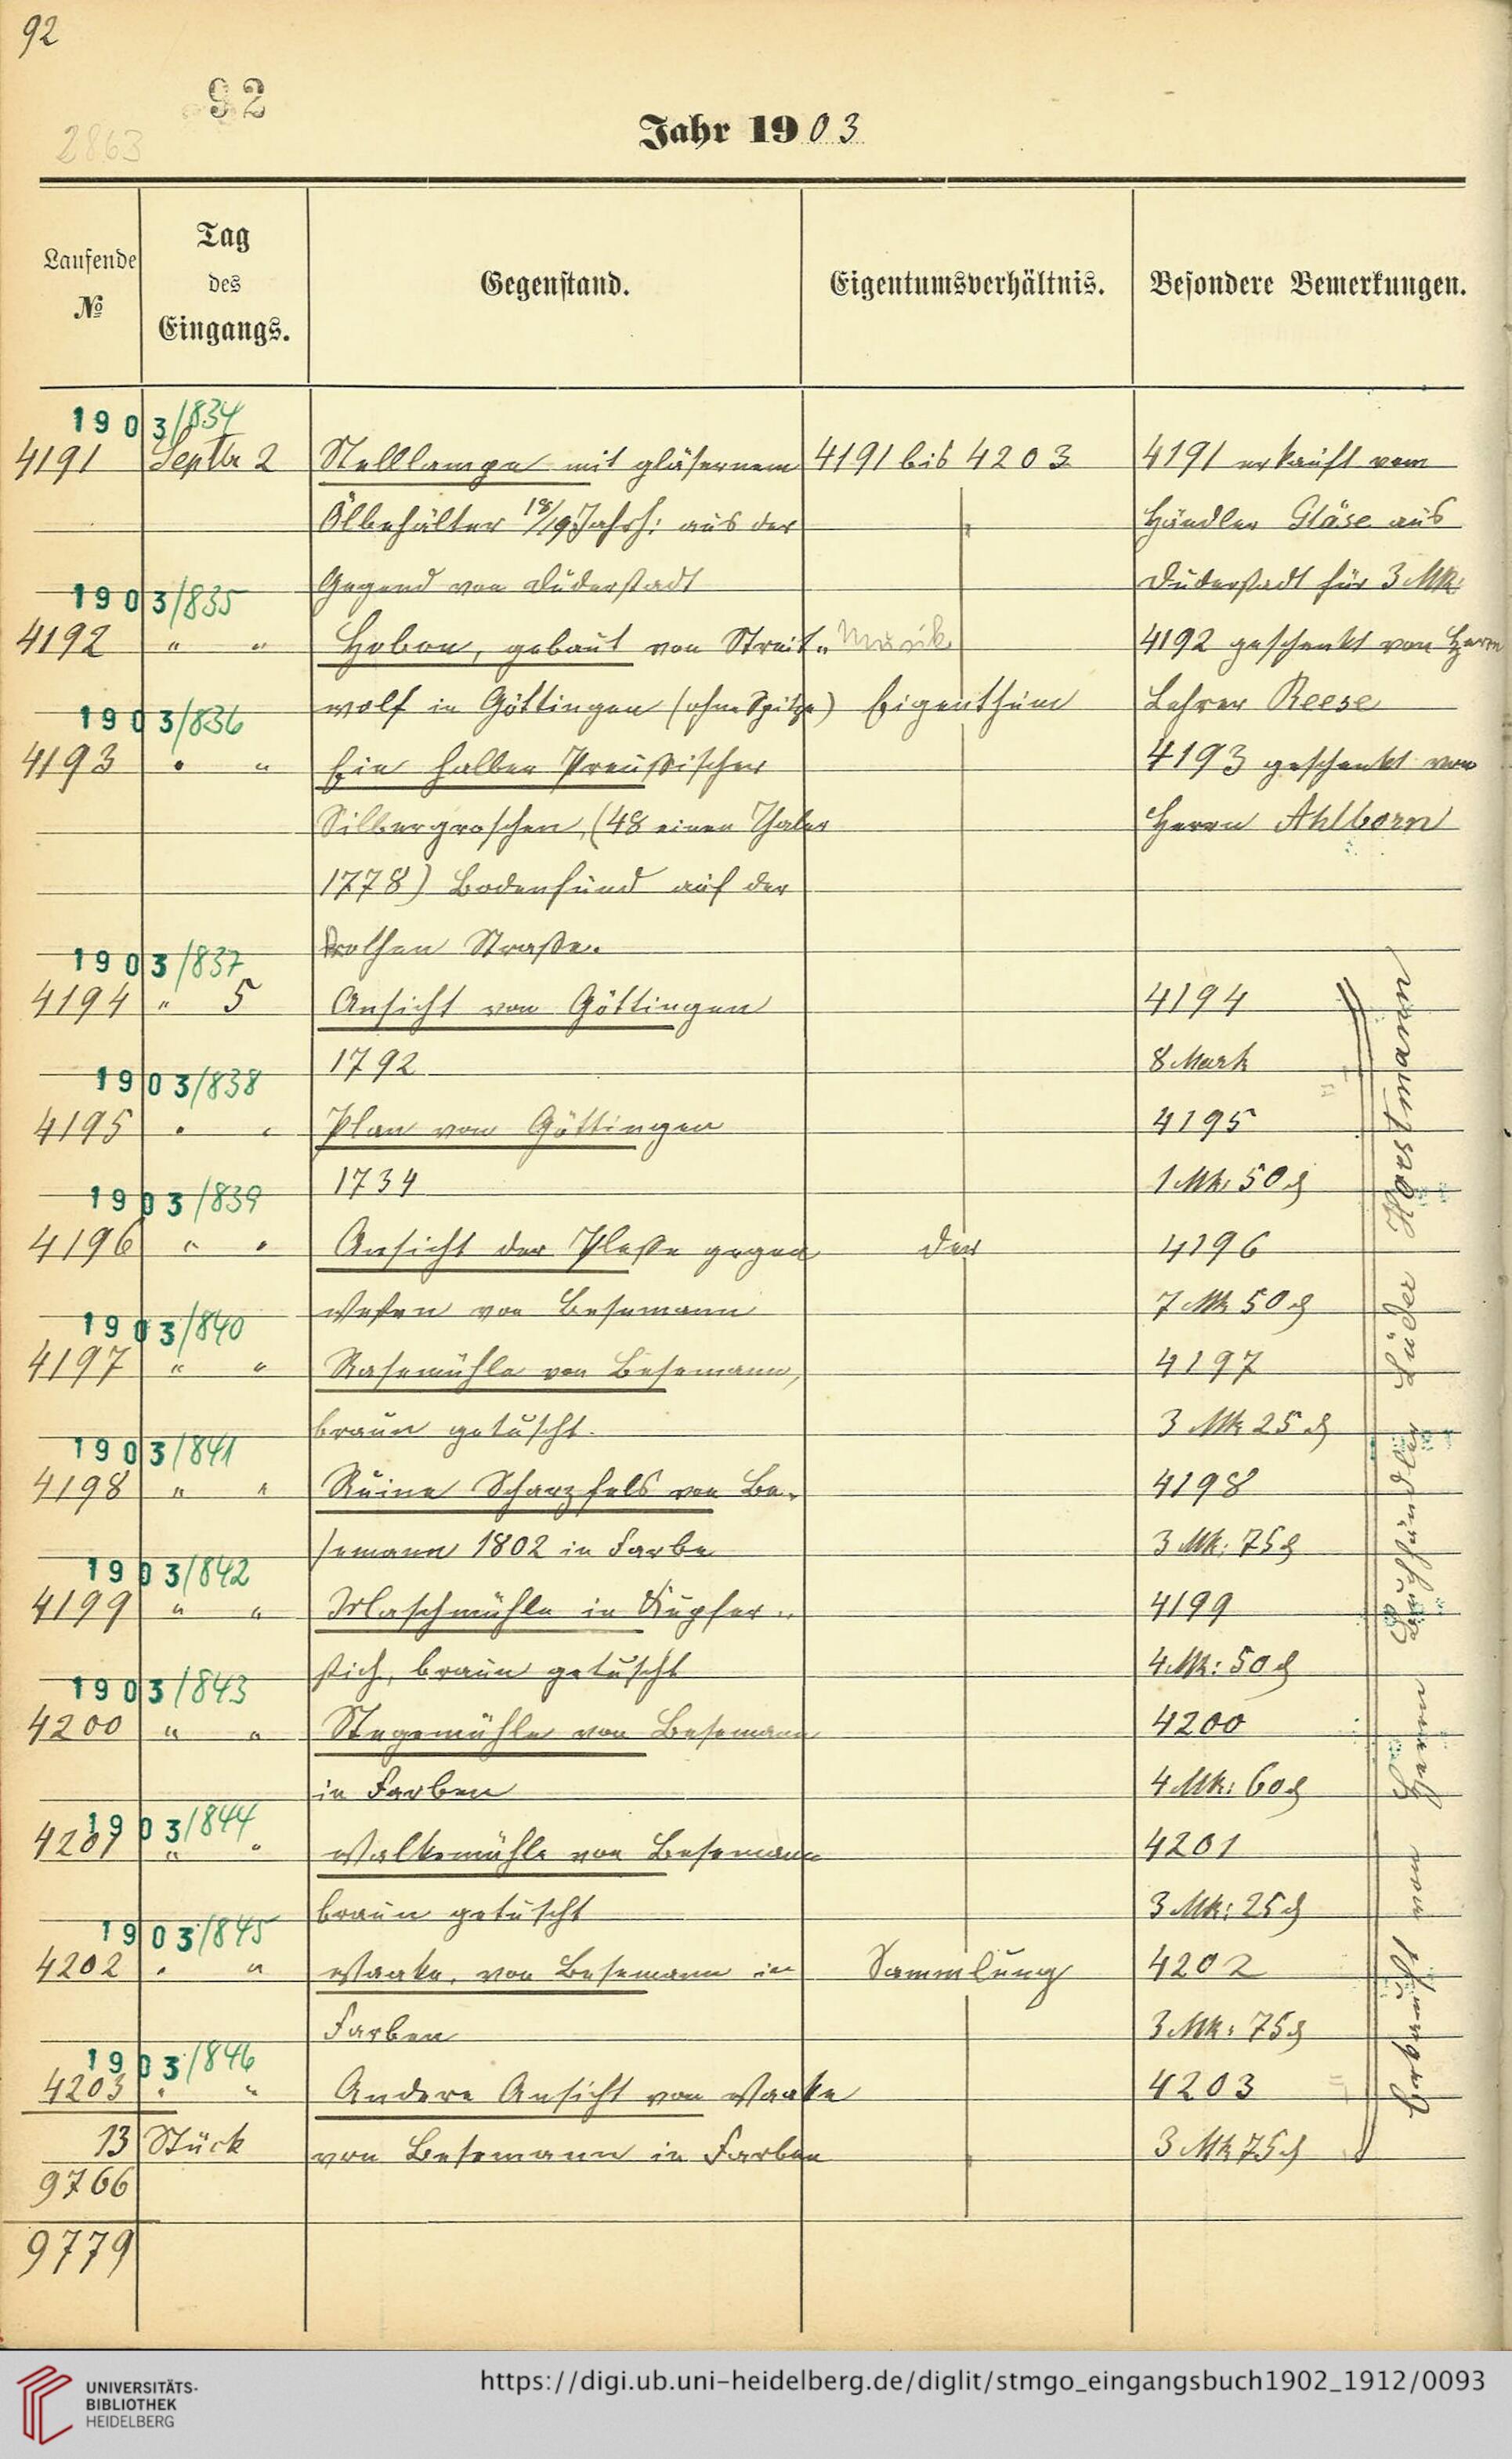 92
92
2863
Jahr 1903
Laufende No
Tag des Eingangs.
Gegenstand.
Eigentumsverhältnis.
Besondere Bemerkungen.
1903/834
4191 Septbr 2 Stelllampe mit gläsernem 4191 bis 4203 4191 erkauft vom
Ölbehälter 18/19 Jahrh: aus der Händler Gläse aus
Gegend von Duderstadt Duderstadt für 3 Mk:
1903/835
4192 " " Hoboe, gebaut von Streit- Musik 4192 geschenkt von Herrn
wolf in Göttingen (ohne Spitze) Eigenthum Lehrer Reese
1903/836
4193 " " Ein halber Preußischer 4193 geschenkt von
Silbergroschen, (48 einen Thaler Herrn Ahlborn
1778) Bodenfund auf der
Rothen Straße.
1903/837
4194 " 5 Ansicht von Göttingen 4194
1792 8 Mark
1903/838
4195 " " Plan von Göttingen 4195
1734 1 Mk. 50 ₰
1903/839
4196 " " Ansicht der Pleße gegen der 4196
Westen von Besemann 7 Mk 50 ₰
1903/840
4197 " " Rasemühle von Besemann, 4197
braun getuscht. 3 Mk 25 ₰
1903/841
4198 " " Ruine Scharzfels von Be- 4198
semann 1802 in Farbe 3 Mk: 75 ₰
1903/842
4199 " " Maschmühle in Kupfer- 4199
stich, braun getuscht 4 Mk: 50 ₰
1903/843
4200 " " Stegemühle von Besemann 4200
in Farben 4 Mk: 60 ₰
1903/844
4201 " " Walkemühle von Besemann 4201
braun getuscht 3 Mk: 25 ₰
1903/845
4202 " " Waake, von Besemann in Sammlung 4202
Farben 3 Mk: 75 ₰
1903/846
4203 " " Andere Ansicht von Waake 4203
13 Stück von Besemann in Farben 3 Mk 75 ₰
9766
9779
Erkauft von Herrn Buchhändler Lüder Horstmann
UNIVERSITÄTS-
BIBLIOTHEK
HEIDELBERG
https://digi.ub.uni-heidelberg.de/diglit/stmgo_eingangsbuch1902_1912/0093